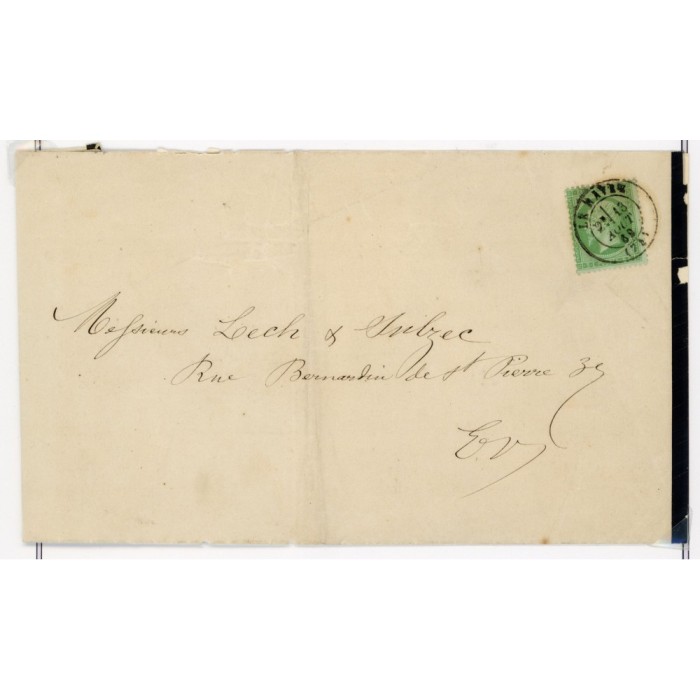 LE HAVRE
13
AOUT
69
(74)
Messieurs Lech & Sulzec
Rue Bernardin de St Pierre 39
E.V